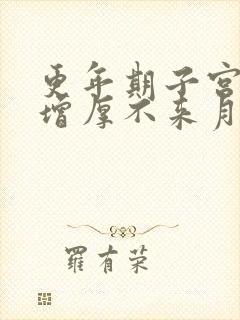 更年期子宫
增厚不来月
罗有荣